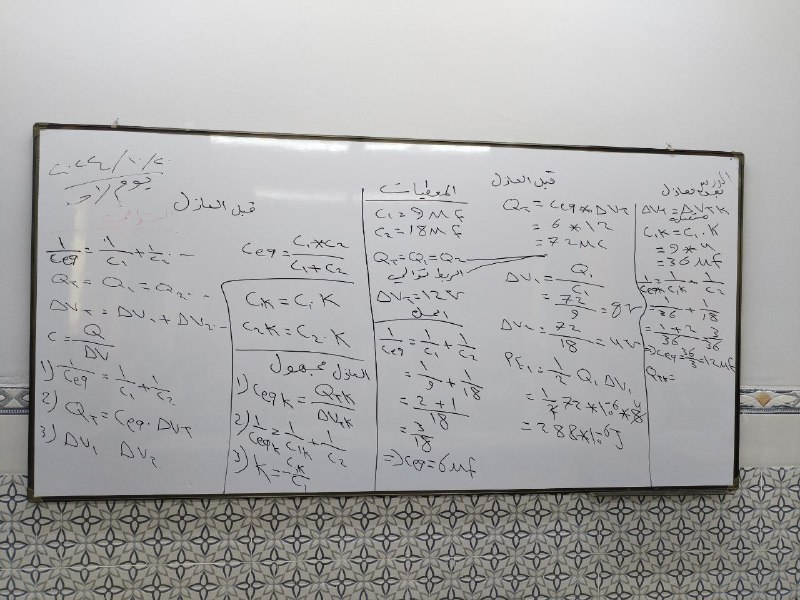 يوم الاحد
قبل العازل
1/Ceq = 1/C1 + 1/C2 -
QT = Q1 = Q2 -
ΔVT = ΔV1 + ΔV2 -
C = Q/ΔV
1) 1/Ceq = 1/C1 + 1/C2
2) QT = Ceq . ΔVT
3) ΔV1 ΔV2
Ceq = C1*C2/C1+C2
C1K = C1 K
C2K = C2 . K
العازل مجهول
1) CeqK = QTK/ΔVTK
2) 1/CeqK = 1/C1K + 1/C2
3) K = CK/C
المعطيات
C1 = 9 Mf
C2 = 18 Mf
QT = Q1 = Q2
الربط توالي
ΔVT = 12 V
الحل
1/Ceq = 1/C1 + 1/C2
= 1/9 + 1/18
= 2+1/18
= 3/18
=> Ceq = 6 Mf
قبل العازل
QT = Ceq * ΔVT
= 6 * 12
= 72 MC
ΔV1 = Q1/C1
= 72/9 = 8V
ΔV2 = 72/18 = 4V
PE1 = 1/2 Q1 ΔV1
= 1/2 72*10-6*8
= 288*10-6 J
بعد العازل
ΔVT = ΔVTK
C1K = C1 . K
= 9 * 4
= 36 Mf
1/CeqK = 1/C1K + 1/C2
= 1/36 + 1/18
= 1+2/36 = 3/36
=> Ceq = 36/3 = 12 Mf
QTK =